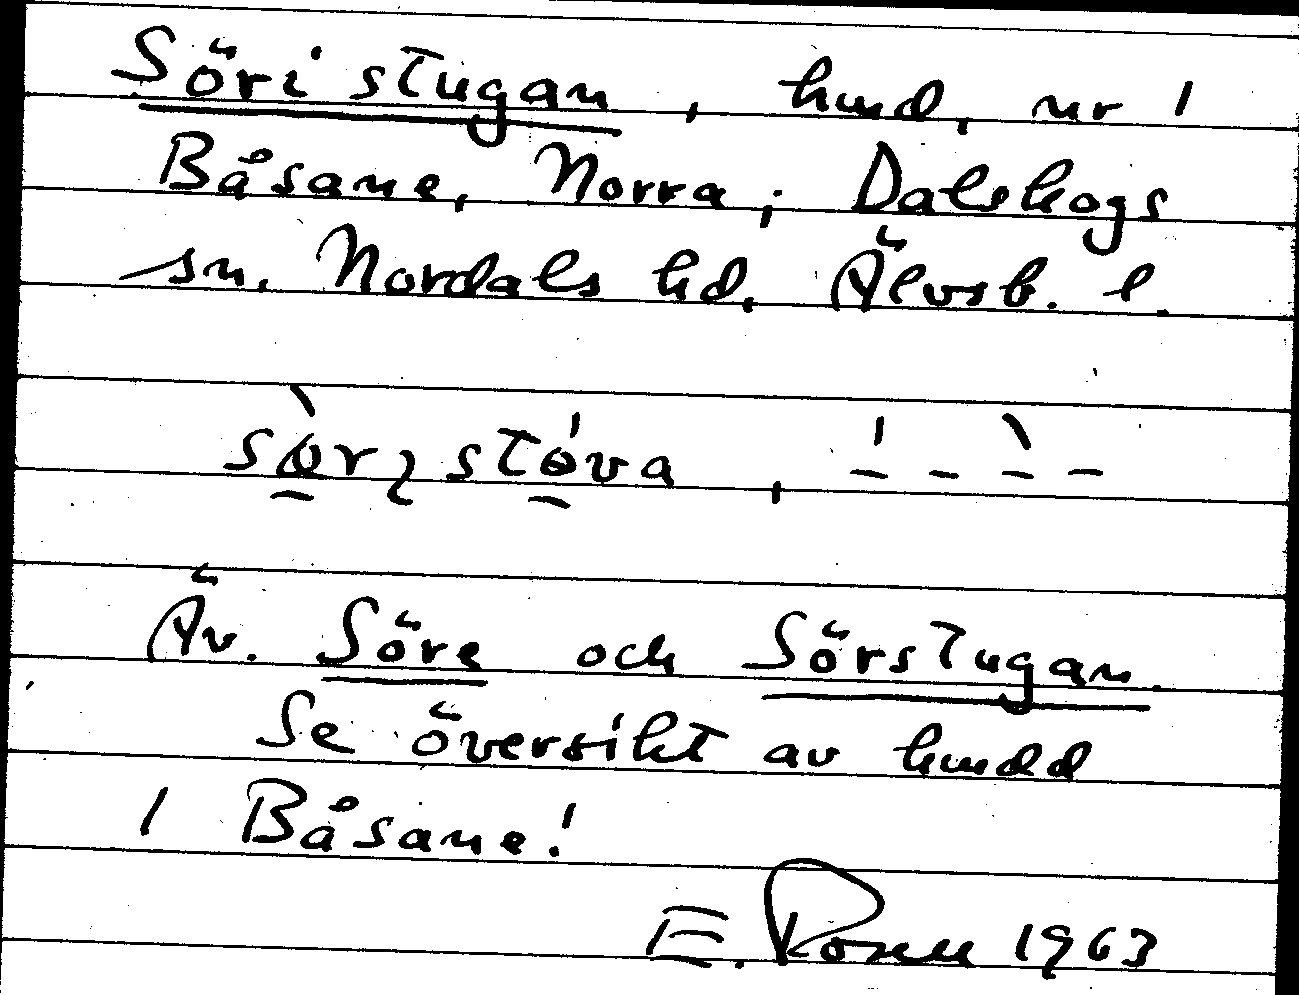 Söri stugan, hmd, nr 1
Båsane, Norra; Dalskogs
sn. Nordals hd, Älvsb. l.
sòrɩ stóva, – – – –
Äv. Söre och Sörstugan.
Se översikt av hmdd
i Båsane!
E. Rosell 1963